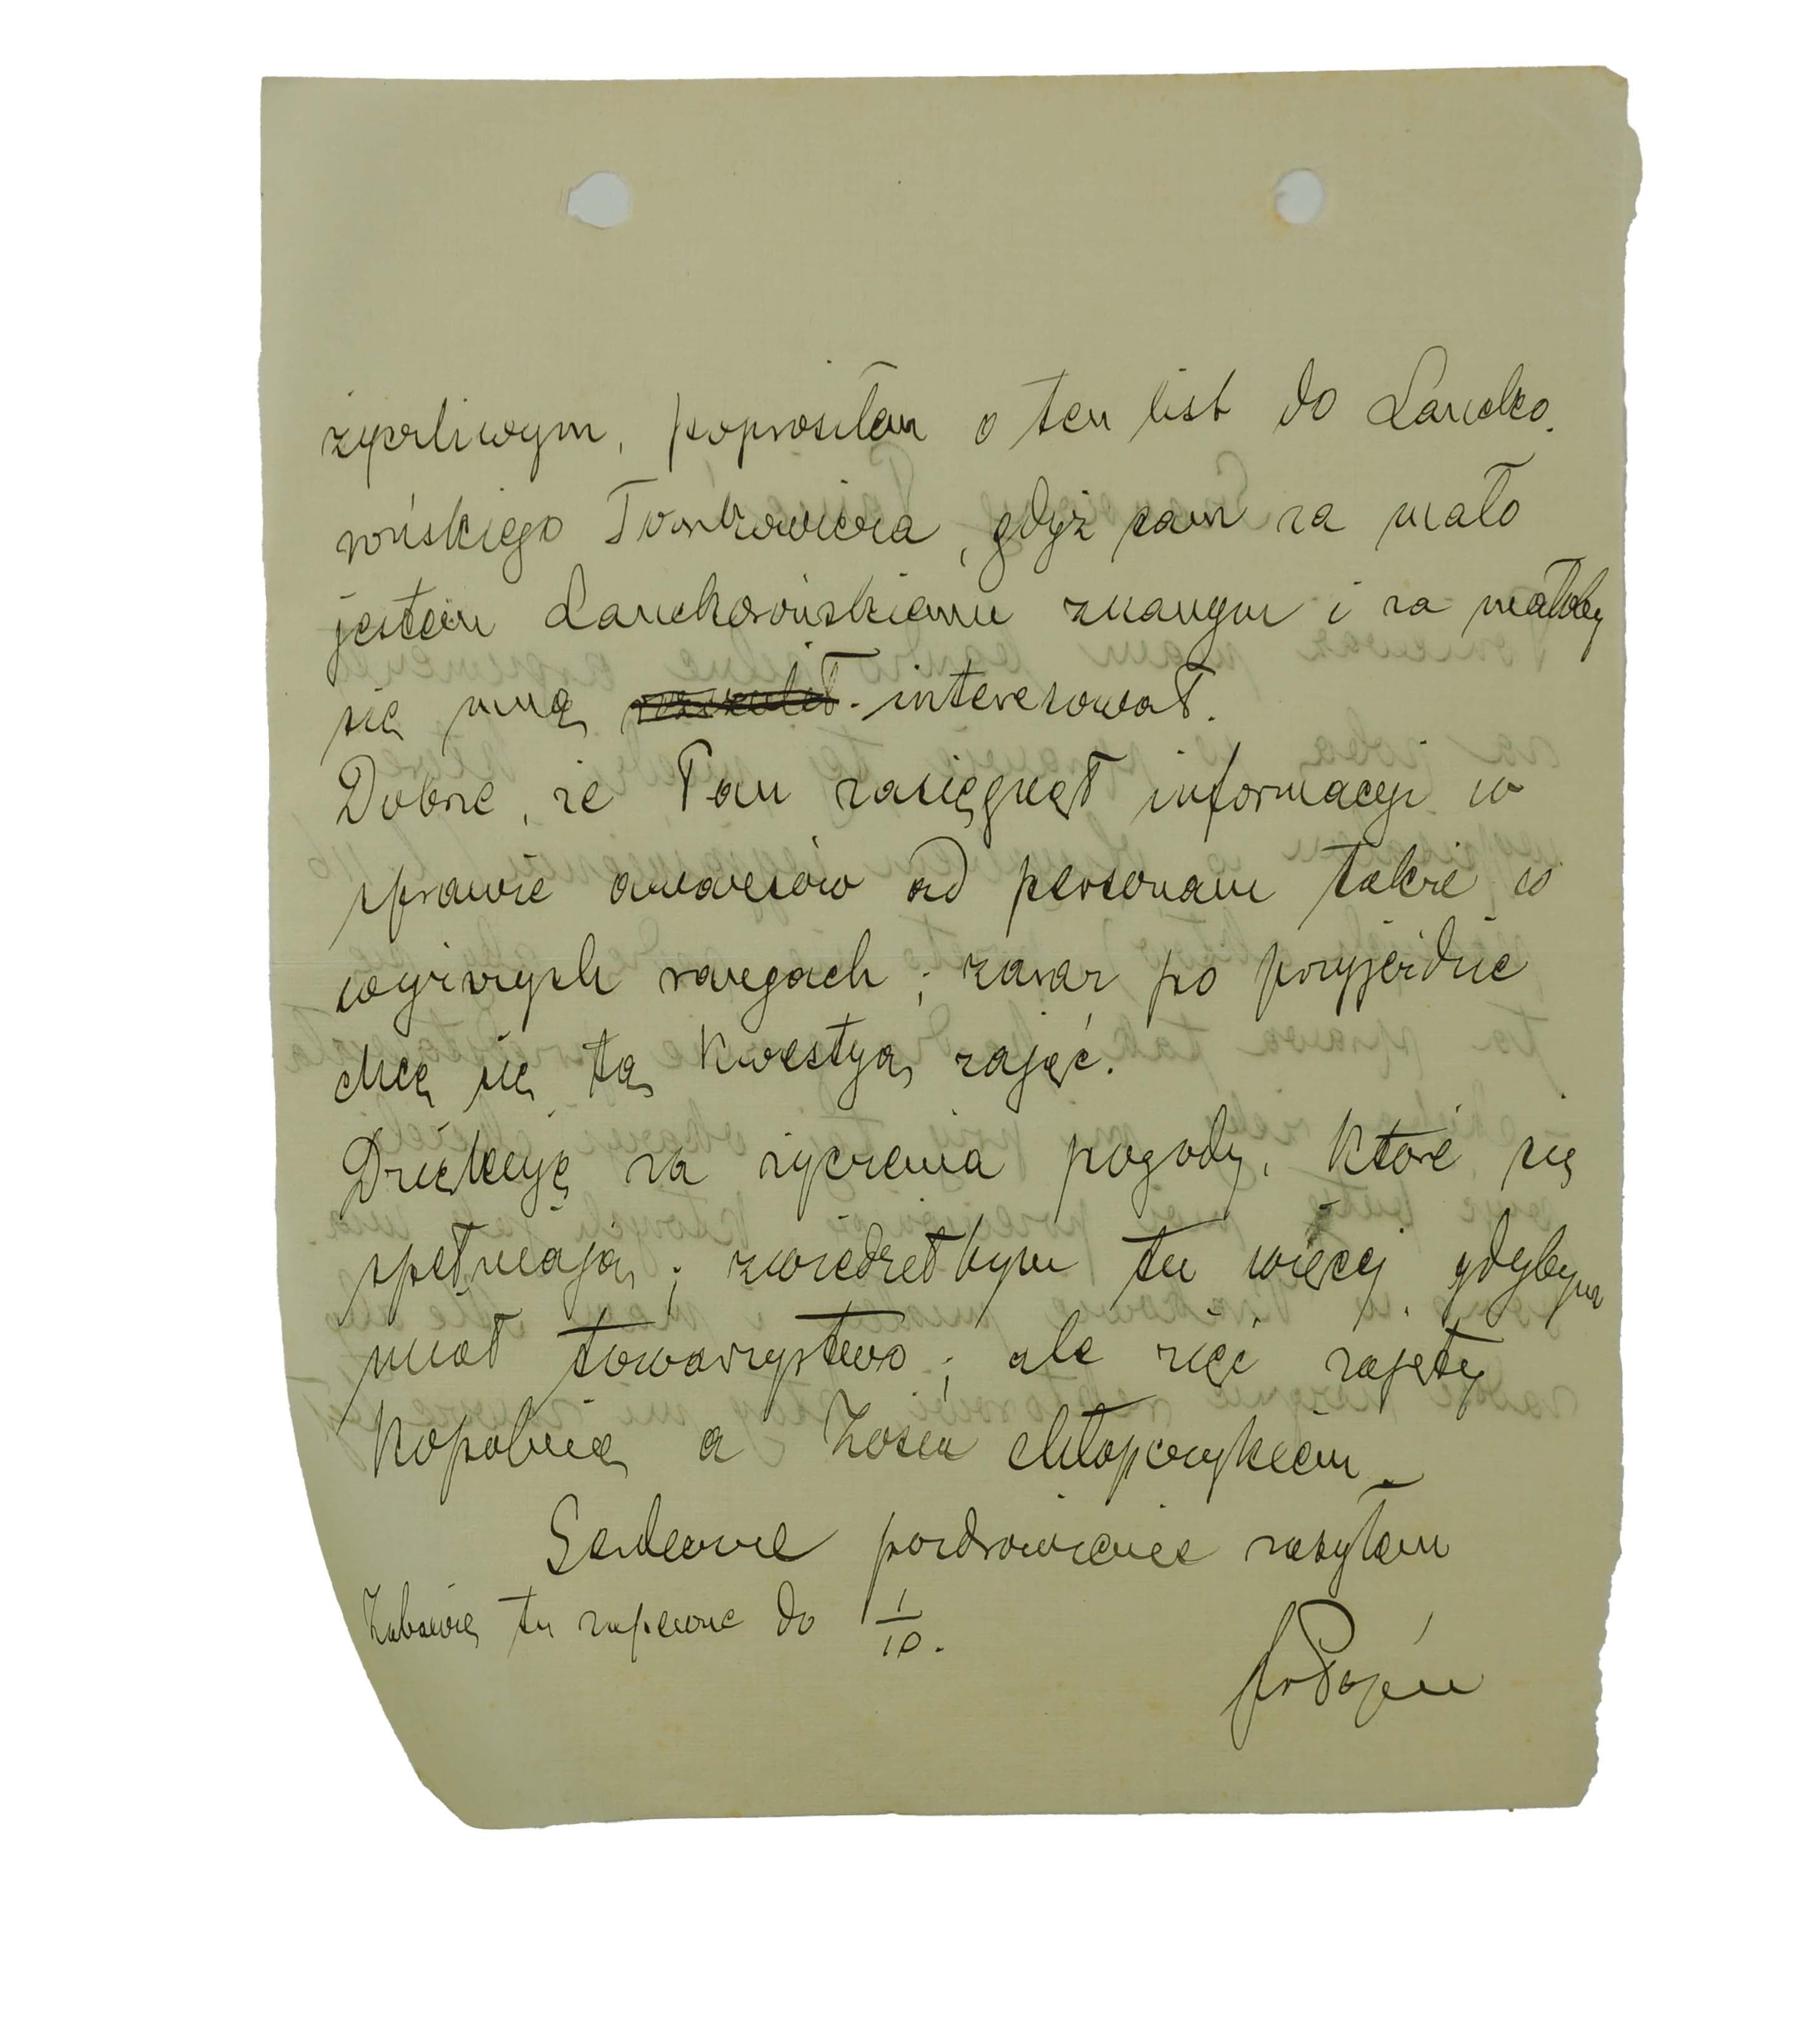 życzliwym, poprosiłem o ten list do Lancko-
rońskiego Tomkowicza, gdyż sam za mało
jestem Lanckorońskiemu znanym i za małoby
się mną interesował.
Dobrze, że Pan zasięgnął informacyi w
sprawie awansów ad personam także w
wyższych rangach; zaraz po przyjeździe
chcę się tą kwestyą zająć.
Dziękuję za życzenia pogody, które się
spełniają; zwiedzałbym tu więcej, gdybym
miał towarzystwo; ale zięć zajęty
kopalnią a Zosia chłopczykiem.
Serdeczne pozdrowienie zasyłam
Zabawię tu zapewne do 1/10.